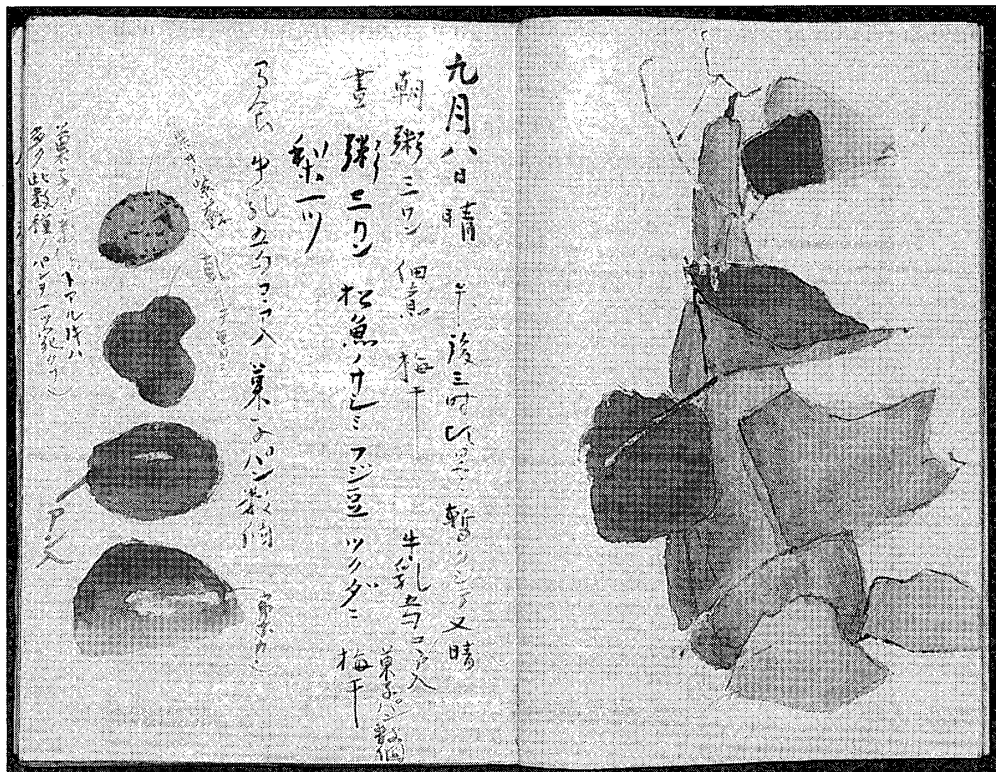 九月八日 晴 午後三時頃曇 暫クシテ又晴
朝 粥三ワン 佃煮 梅干 牛乳五勺ココア入 菓子パン数個
晝 粥三ワン 松魚ノサシミ フジ豆 ツクダニ 梅干
梨一ツ
間食 牛乳五勺ココア入 菓子パン数個
アン入
菓子パン数個トアルトキハ
多ク此数種ノパンヲ一ツ宛クフ也